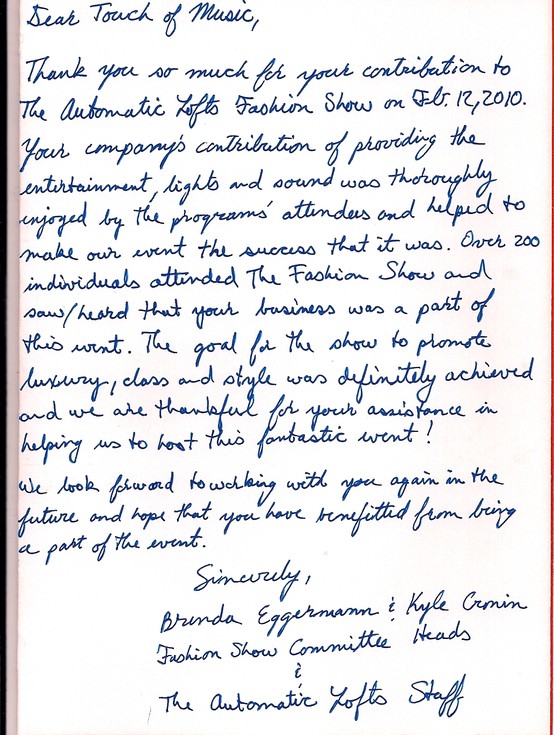 Dear Touch of Music,
Thank you so much for your contribution to
The Automatic Lofts Fashion Show on Feb. 12, 2010.
Your company's contribution of providing the
entertainment, lights and sound was thoroughly
enjoyed by the programs' attendees and helped to
make our event the success that it was. Over 200
individuals attended The Fashion Show and
saw/heard that your business was a part of
this event. The goal for the show to promote
luxury, class and style was definitely achieved
and we are thankful for your assistance in
helping us to host this fantastic event!
We look forward to working with you again in the
future and hope that you have benefitted from being
a part of the event.
Sincerely,
Brenda Eggermann & Kyle Cronin
Fashion Show Committee Heads
&
The Automatic Lofts Staff